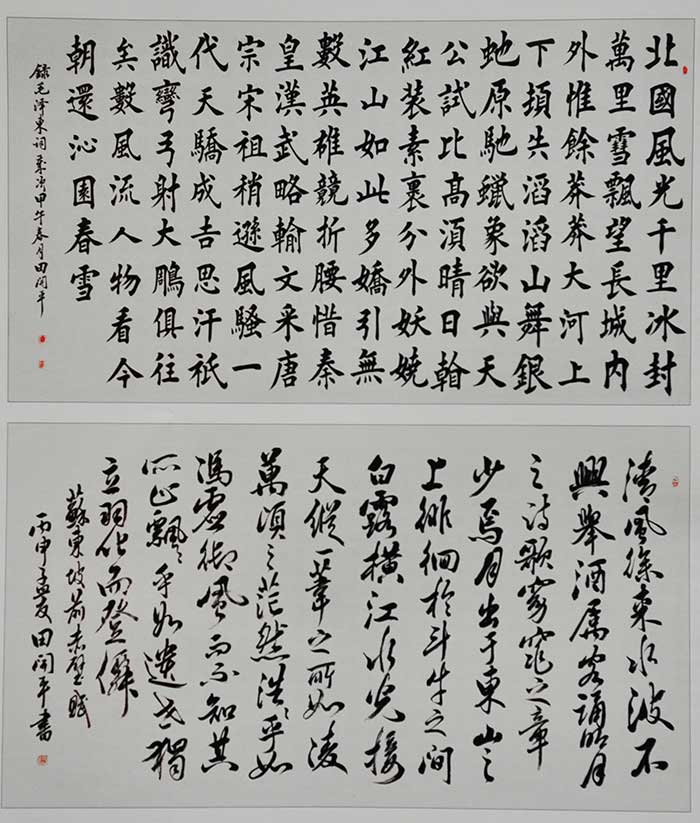 北國風光千里冰封
萬里雪飄望長城内
外惟餘莽莽大河上
下頓失滔滔山舞銀
蛇原馳蠟象欲與天
公試比高須晴日
紅装素裹分外妖嬈
江山如此多嬌引無
數英雄競折腰惜秦
皇漢武略輸文采唐
宗宋祖稍遜風騷一
代天驕成吉思汗祇
識彎弓射大鵰俱往
矣數風流人物看今
朝還沁園春雪
錄毛澤東詞甲午春月田開平
清風徐來水波不
興舉酒屬客誦明月
之詩歌窈窕之章
少焉月出于東山之
上徘徊於斗牛之間
白露横江水光接
天縱一葦之所如凌
萬頃之茫然浩浩乎如
馮虛御風而不知其
所止飄飄乎如遺世獨
立羽化而登僊
蘇東坡前赤壁賦
丙申孟夏田開平書